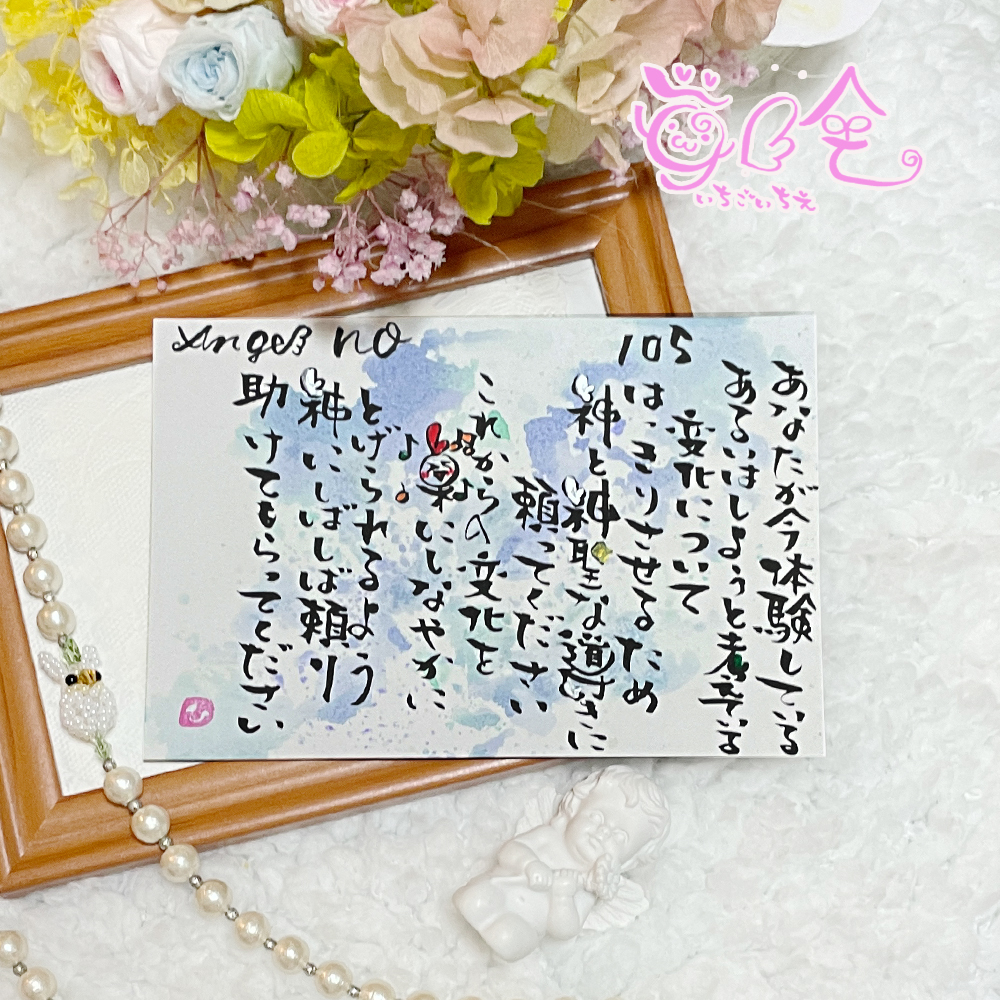 Angel no 105
あなたが今体験している
あるいはしようと考えている
変化について
はっきりさせるため
神と神聖な導きに
頼ってください
これからの変化を
楽にしなやかに
とげられるよう
神にしばしば頼り
助けてもらってください
いちごいちえ